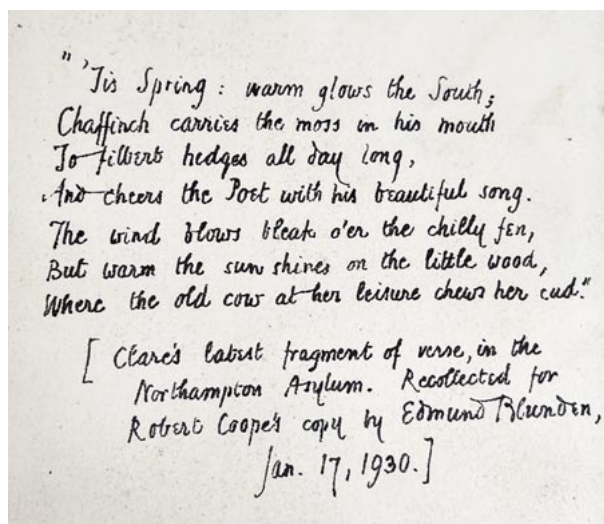 " 'Tis Spring : warm glows the South;
Chaffinch carries the moss in his mouth
To filbert hedges all day long,
And cheers the Poet with his beautiful song.
The wind blows bleak o'er the chilly fen,
But warm the sun shines on the little wood,
Where the old cow at her leisure chews her cud."
[ Clare's latest fragment of verse, in the
Northampton Asylum. Recollected for
Robert Coope's copy by Edmund Blunden,
Jan. 17, 1930.]